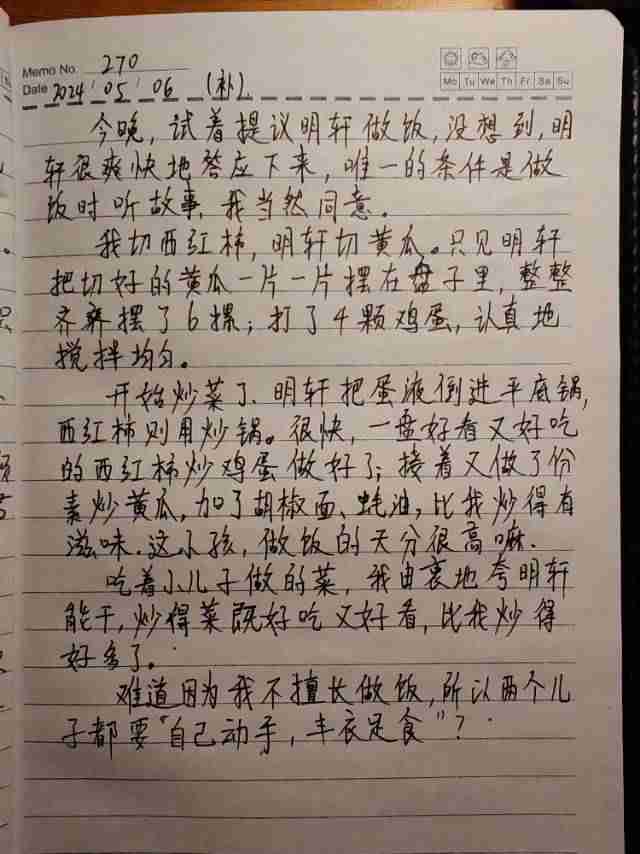 Memo No. 270
Mo Tu We Th Fr Sa Su
Date 2024/05/06 (补)
今晚,试着提议明轩做饭,没想到,明
轩很爽快地答应下来,唯一的条件是做
饭时听故事,我当然同意。
我切西红柿,明轩切黄瓜。只见明轩
把切好的黄瓜一片一片摆在盘子里,整整
齐齐摆了6摞;打了4颗鸡蛋,认真地
搅拌均匀。
开始炒菜了、明轩把蛋液倒进平底锅,
西红柿则用炒锅。很快,一盘好看又好吃
的西红柿炒鸡蛋做好了;接着又做了份
素炒黄瓜,加了胡椒面、蚝油,比我炒得有
滋味.这小孩,做饭的天分很高嘛.
吃着小儿子做的菜,我由衷地夸明轩
能干,炒得菜既好吃又好看,比我炒得
好多了。
难道因为我不擅长做饭,所以两个儿
子都要“自己动手,丰衣足食”?